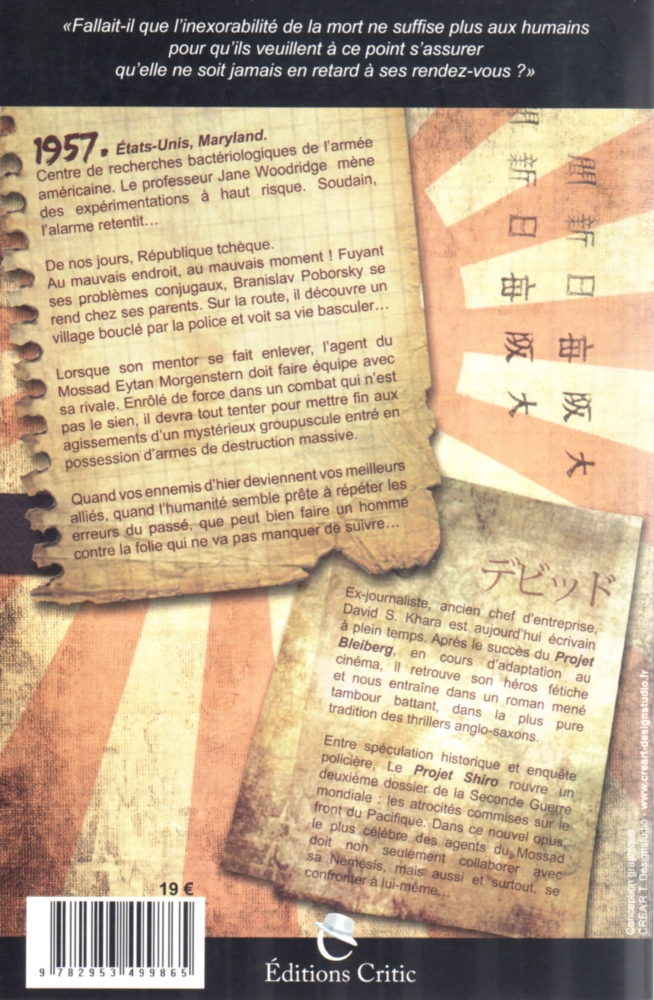 «Fallait-il que l’inexorabilité de la mort ne suffise plus aux humains
pour qu’ils veuillent à ce point s’assurer
qu’elle ne soit jamais en retard à ses rendez-vous ?»
1957. États-Unis, Maryland.
Centre de recherches bactériologiques de l’armée
américaine. Le professeur Jane Woodridge mène
des expérimentations à haut risque. Soudain,
l’alarme retentit…
De nos jours, République tchèque.
Au mauvais endroit, au mauvais moment ! Fuyant
ses problèmes conjugaux, Branislav Poborsky se
rend chez ses parents. Sur la route, il découvre un
village bouclé par la police et voit sa vie basculer…
Lorsque son mentor se fait enlever, l’agent du
Mossad Eytan Morgenstern doit faire équipe avec
sa rivale. Enrôlé de force dans un combat qui n’est
pas le sien, il devra tout tenter pour mettre fin aux
agissements d’un mystérieux groupuscule entré en
possession d’armes de destruction massive.
Quand vos ennemis d’hier deviennent vos meilleurs
alliés, quand l’humanité semble prête à répéter les
erreurs du passé, que peut bien faire un homme
contre la folie qui ne va pas manquer de suivre…
大阪毎日新聞
大阪毎日新聞
デビッド
Ex-journaliste, ancien chef d’entreprise,
David S. Khara est aujourd’hui écrivain
à plein temps. Après le succès du Projet
Bleiberg, en cours d’adaptation au
cinéma, il retrouve son héros fétiche
et nous entraîne dans un roman mené
tambour battant, dans la plus pure
tradition des thrillers anglo-saxons.
Entre spéculation historique et enquête
policière, Le Projet Shiro rouvre un
deuxième dossier de la Seconde Guerre
mondiale : les atrocités commises sur le
front du Pacifique. Dans ce nouvel opus,
le plus célèbre des agents du Mossad
doit non seulement collaborer avec
sa Némésis, mais aussi et surtout, se
confronter à lui-même…
Conception graphique :
CREAR T. Designstudio - www.creart-designstudio.fr
19 €
9 782953 499865
Éditions Critic